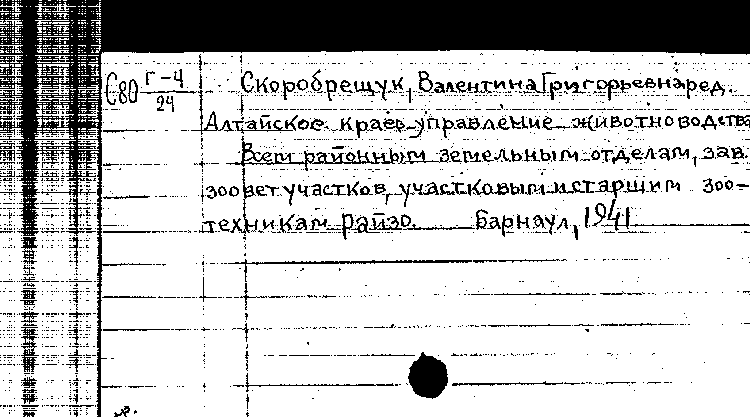 С80 Г-4/24 Скоробрещук, Валентина Григорьевна, ред.
Алтайское краев. управление животноводства
Всем районным земельным отделам, зав.
зооветучастков, участковым и старшим зоо-
техникам райзо. Барнаул, 1941.